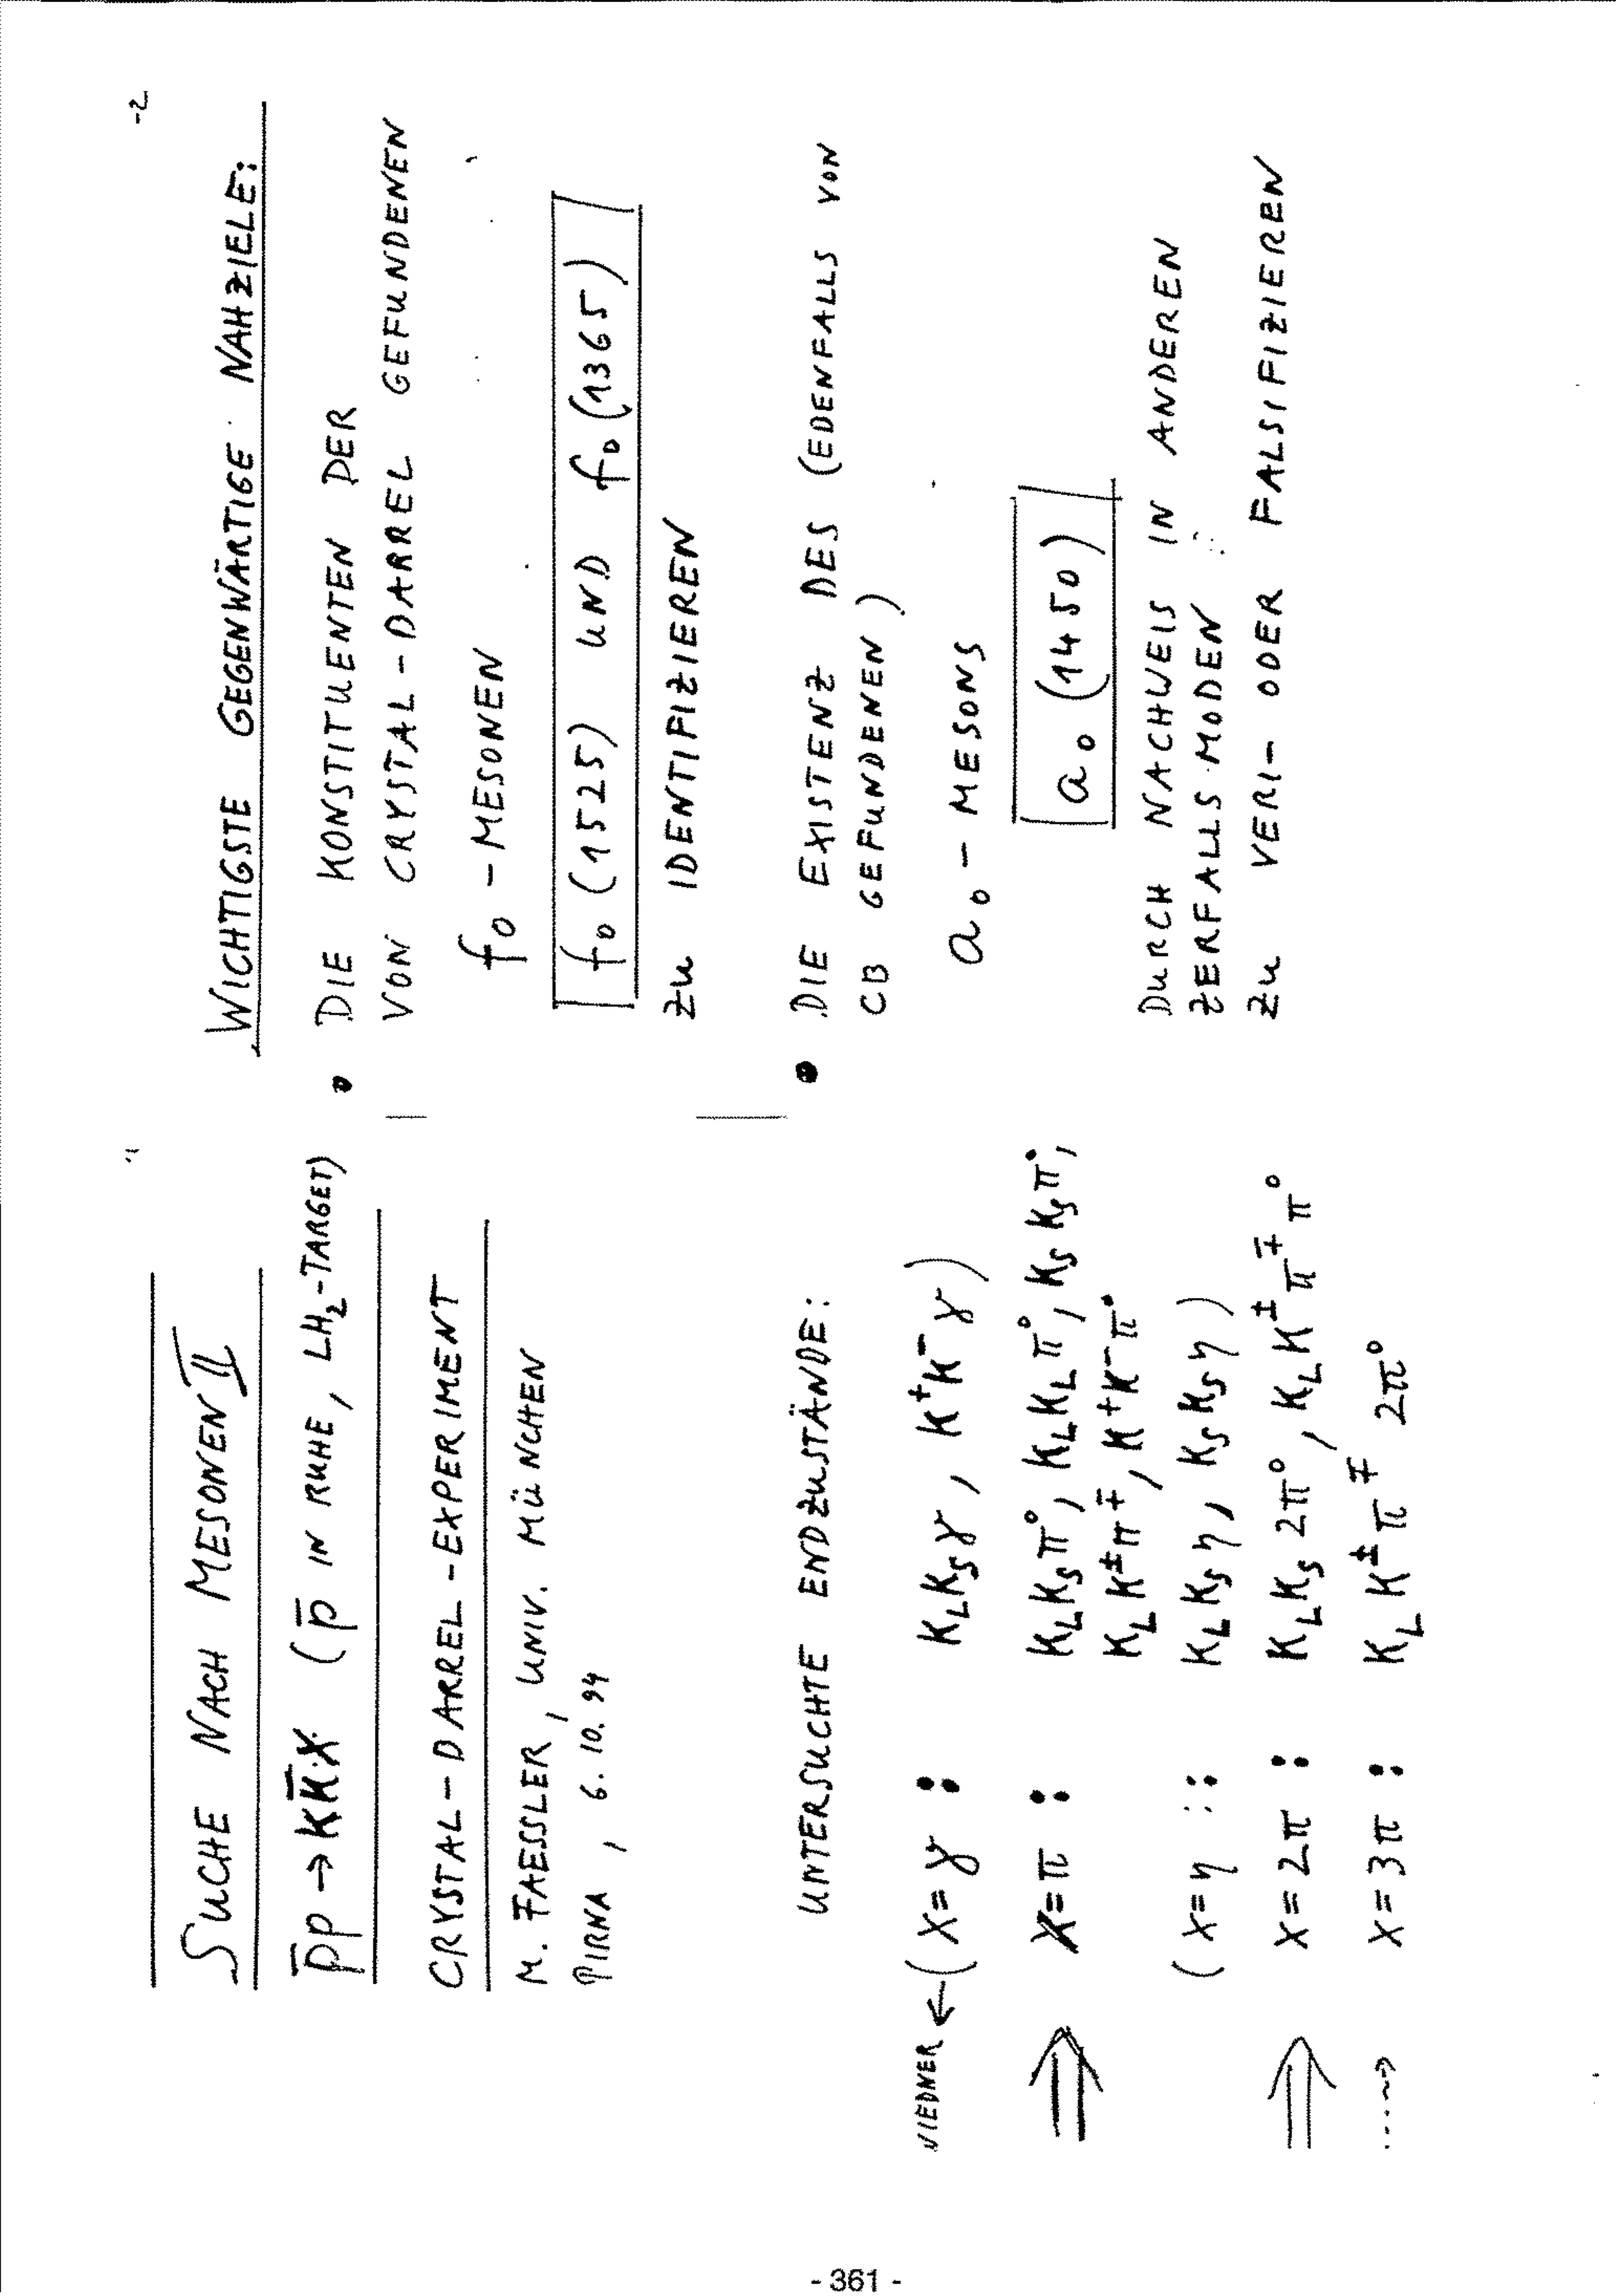 SUCHE NACH MESONEN II
p̄p → KK̄X (p̄ IN RUHE, LH₂-TARGET)
CRYSTAL-BARREL-EXPERIMENT
M. FAESSLER, UNIV. MÜNCHEN
PIRNA, 6.10.94
UNTERSUCHTE ENDZUSTÄNDE:
WIEDNER ← (X=γ : K_L K_S γ, K⁺K⁻γ)
⇒ X=π : K_L K_S π⁰, K_L K_L π⁰, K_S K_S π⁰,
K_L K^± π^∓, K⁺K⁻π⁰
(X=η : K_L K_S η, K_S K_S η)
⇒ X=2π : K_L K_S 2π⁰, K_L K^± π^∓ π⁰
····→ X=3π : K_L K^± π^∓ 2π⁰
-2
WICHTIGSTE GEGENWÄRTIGE NAHZIELE:
• DIE KONSTITUENTEN DER
VON CRYSTAL-BARREL GEFUNDENEN
f₀-MESONEN
f₀(1525) UND f₀(1365)
ZU IDENTIFIZIEREN
• DIE EXISTENZ DES (EBENFALLS VON
CB GEFUNDENEN)
a₀-MESONS
a₀(1450)
DURCH NACHWEIS IN ANDEREN
ZERFALLSMODEN
ZU VERI- ODER FALSIFIZIEREN
- 361 -